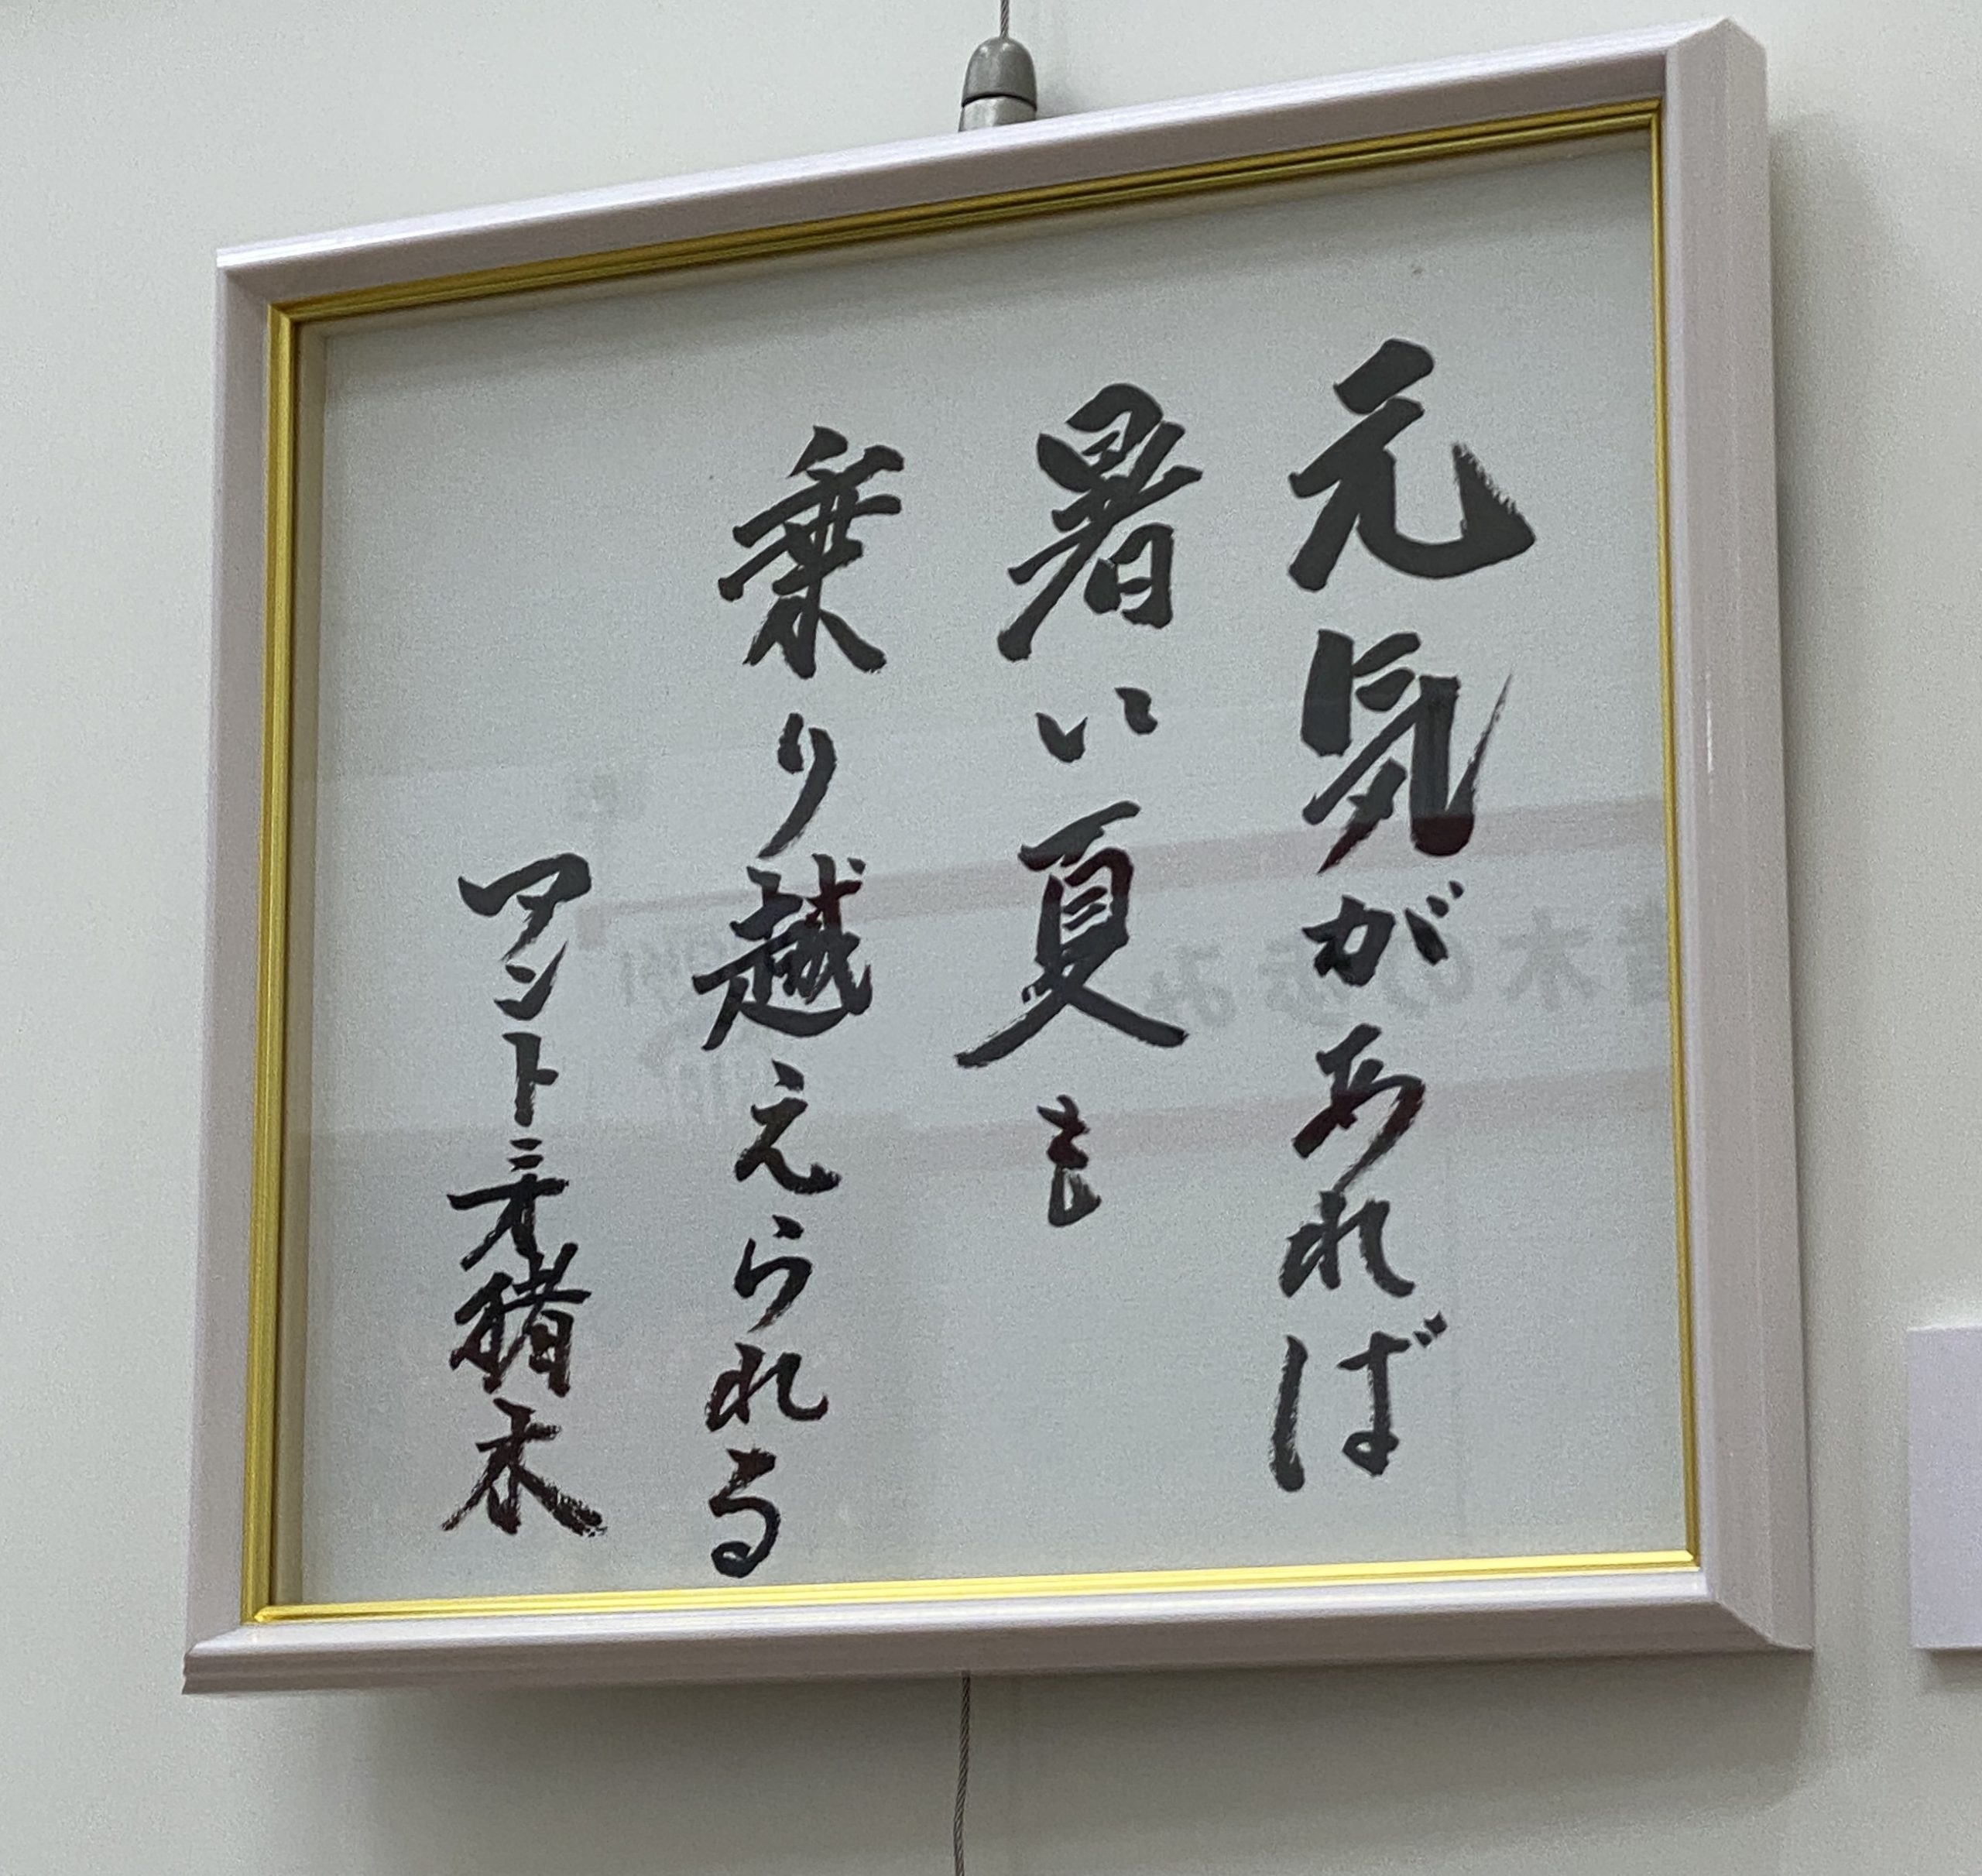 元気があれば
暑い夏も
乗り越えられる
アントニオ猪木
木の歩み